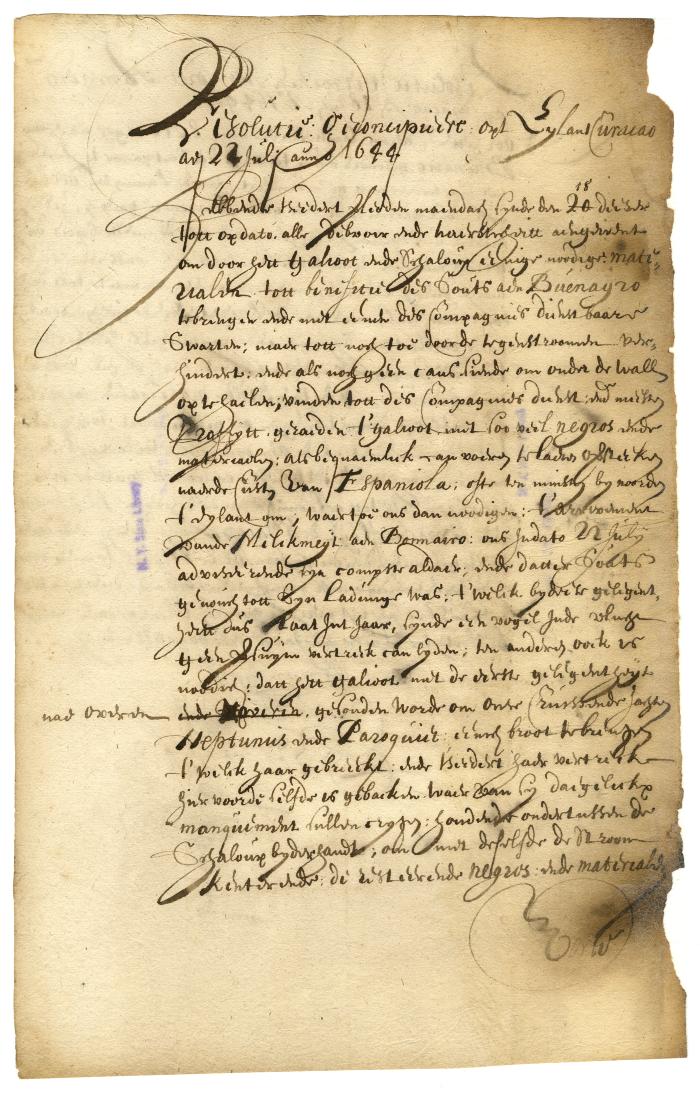 Resolutie: Geconcipieert opt Eylant Curacao
adj 22 Julij anno 1644
Hebbende sedert sleden maendach synde den 18 deser
tott op dato alle debvoir ende naersticheitt aengewent
om door hett Galioot ende Schaloup eenige nodige mate-
rialen tott benifitie des Souts aen Buenagro
te brengen ende mett eenen des Compagnies dienstbaare
Swarten; maer tott noch toe door de tegenstroomen ver-
hindert: ende als noch geen caus siende om onder de wall
op te haelen; vinden tott des Compagnies dienst: end meesten
Proffijtt geraeden t'galioot mit soo veel negros ende
materiaelen: als bequaemlick can voeren te laden
naer de Custe Van Espaniola; ofte ten minsten by noorden
t'eylant om; waer toe ons dan noodigen: t'arrivement
vande Milckmeyt aen Bonnairo: ons Judato 22 July
adverterende syn compste aldaer; ende datter Souts
genoech tott syn Ladinge was; t'welck by dese gelegent-
heitt dus Laat Int Jaar, synde een vogel Inde vlucht
geen Ruym vertreck can lyden; ten anderen oock is
nodich; datt hett galioot mett de eerste gelegentheyt
nae overen
ende gesonden worde om onse Cruissende Jachten
Neptunus ende Paroquiet: eenich broot te brengen
t'welck haar gebreckt: ende sedert haer vertreck
hier voor de selfde is gebacken waer van sy daegelickx
manquement sullen crygen; houdende ondertussen de
Schaloup byderhandt; om mett deselfde de Stroom
Kenterende: de resteerende negros: ende materialen
N.Y. State Library